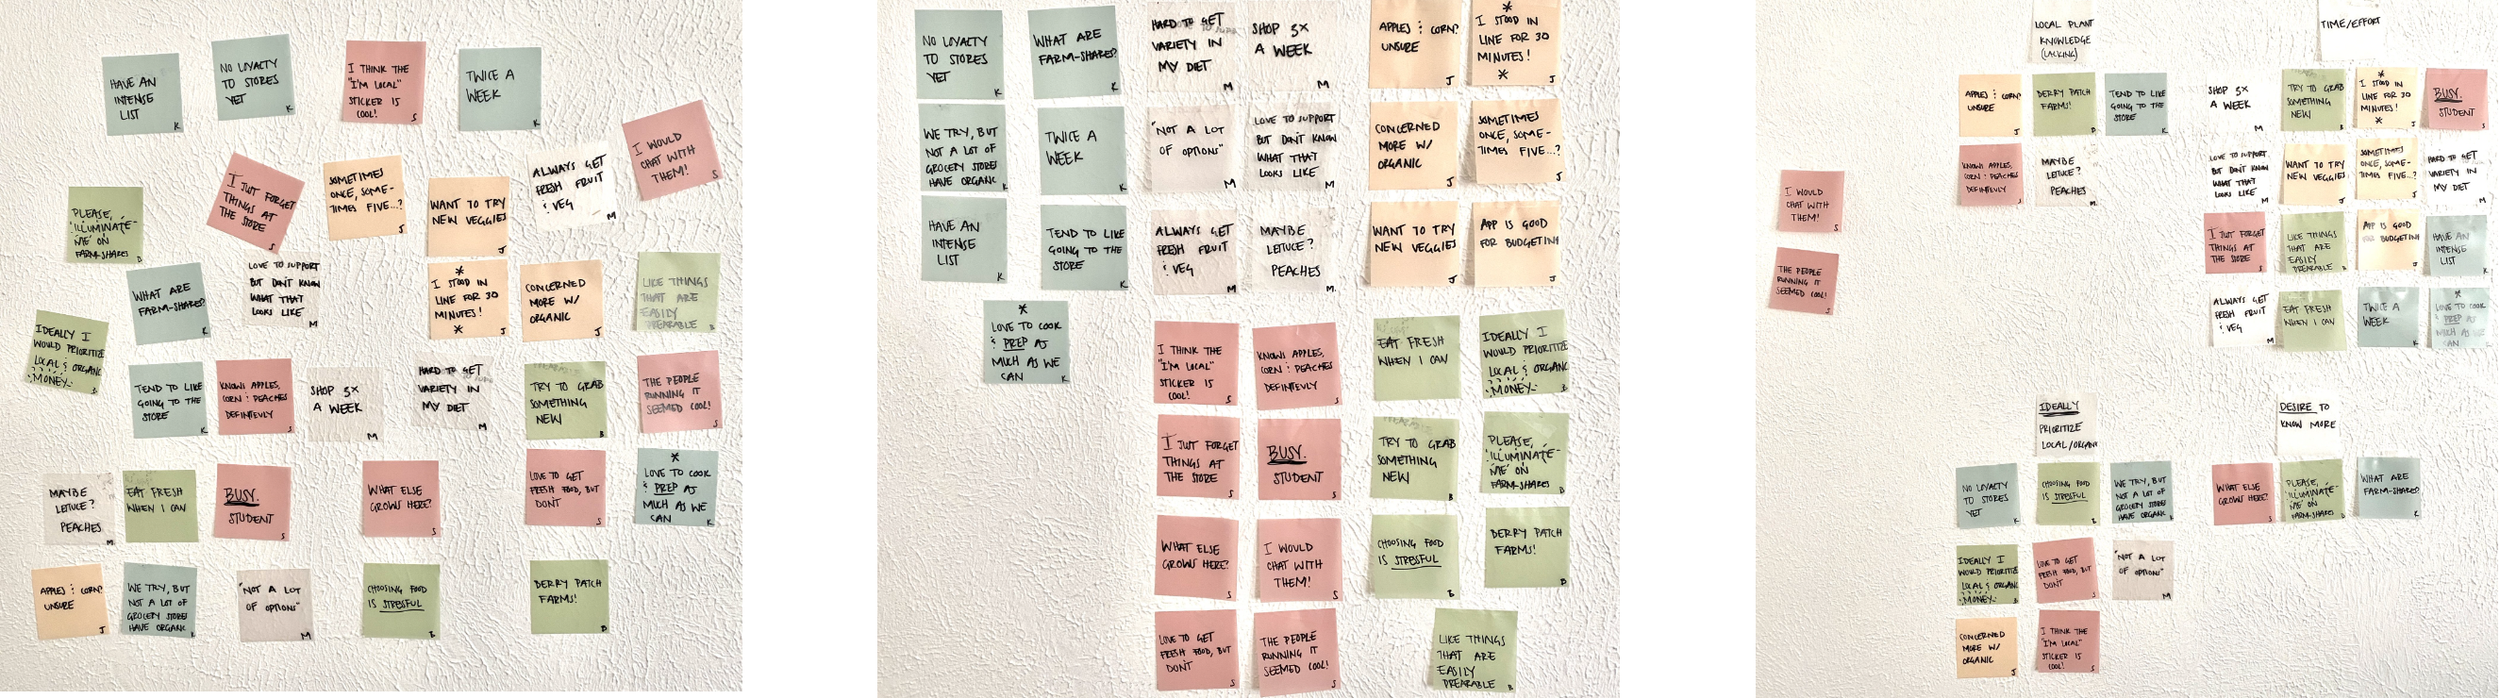 HAVE AN
INTENSE
LIST
K
NO LOYALTY
TO STORES
YET
K
I THINK THE
"I'M LOCAL"
STICKER IS
COOL!
S
TWICE A
WEEK
K
I WOULD
CHAT WITH
THEM!
S
I JUST FORGET
THINGS AT
THE STORE
S
SOMETIMES
ONCE, SOME-
TIMES FIVE...?
J
WANT TO TRY
NEW VEGGIES
J
ALWAYS GET
FRESH FRUIT
& VEG
M
PLEASE,
"ILLUMINATE"
ME ON
FARM-SHARES
B
WHAT ARE
FARM-SHARES?
K
LOVE TO SUPPORT
BUT DON'T KNOW
WHAT THAT
LOOKS LIKE
M
*
I STOOD IN
LINE FOR 30
MINUTES!
*
J
CONCERNED
MORE W/
ORGANIC
J
LIKE THINGS
THAT ARE
EASILY
PREARABLE
B
IDEALLY I
WOULD PRIORITIZE
LOCAL & ORGANIC
MONEY
B
TEND TO LIKE
GOING TO THE
STORE
K
KNOWS APPLES,
CORN & PEACHES
DEFINITEVLY
S
SHOP 3X
A WEEK
M
HARD TO GET
VARIETY IN
MY DIET
M
TRY TO GRAB
SOMETHING
NEW
B
THE PEOPLE
RUNNING IT
SEEMED COOL!
S
MAYBE
LETTUCE?
PEACHES
M
EAT FRESH
WHEN I CAN
BUSY.
STUDENT
S
WHAT ELSE
GROWS HERE?
S
LOVE TO GET
FRESH FOOD, BUT
DON'T
S
*
LOVE TO COOK
& PREP AS
MUCH AS WE
CAN
K
APPLES & CORN?
UNSURE
J
WE TRY, BUT
NOT A LOT OF
GROCERY STORES
HAVE ORGANIC
K
"NOT A LOT
OF OPTIONS"
M
CHOOSING FOOD
IS STRESSFUL
B
BERRY PATCH
FARMS!
B
NO LOYALTY
TO STORES
YET
K
WHAT ARE
FARM-SHARES?
K
HARD TO GET
VARIETY IN
MY DIET
M
SHOP 3X
A WEEK
M
APPLES & CORN?
UNSURE
J
*
I STOOD IN
LINE FOR 30
MINUTES!
*
J
WE TRY, BUT
NOT A LOT OF
GROCERY STORES
HAVE ORGANIC
K
TWICE A
WEEK
K
"NOT A LOT
OF OPTIONS"
M
LOVE TO SUPPORT
BUT DON'T KNOW
WHAT THAT
LOOKS LIKE
M
CONCERNED
MORE W/
ORGANIC
J
SOMETIMES
ONCE, SOME-
TIMES FIVE...?
J
HAVE AN
INTENSE
LIST
K
TEND TO LIKE
GOING TO THE
STORE
K
ALWAYS GET
FRESH FRUIT
& VEG
M
MAYBE
LETTUCE?
PEACHES
M
WANT TO TRY
NEW VEGGIES
J
APP IS GOOD
FOR BUDGETING
J
*
LOVE TO COOK
& PREP AS
MUCH AS WE
CAN
K
I THINK THE
"I'M LOCAL"
STICKER IS
COOL!
S
KNOWS APPLES,
CORN & PEACHES
DEFINITEVLY
S
EAT FRESH
WHEN I CAN
IDEALLY I
WOULD PRIORITIZE
LOCAL & ORGANIC
MONEY
B
I JUST FORGET
THINGS AT
THE STORE
S
BUSY.
STUDENT
S
TRY TO GRAB
SOMETHING
NEW
B
PLEASE,
"ILLUMINATE"
ME ON
FARM-SHARES
B
WHAT ELSE
GROWS HERE?
S
I WOULD
CHAT WITH
THEM!
S
CHOOSING FOOD
IS STRESSFUL
B
BERRY PATCH
FARMS!
B
LOVE TO GET
FRESH FOOD, BUT
DON'T
S
THE PEOPLE
RUNNING IT
SEEMED COOL!
S
LIKE THINGS
THAT ARE
EASILY
PREARABLE
B
LOCAL PLANT
KNOWLEDGE
(LACKING)
TIME/EFFORT
APPLES & CORN?
UNSURE
J
BERRY PATCH
FARMS!
B
TEND TO LIKE
GOING TO THE
STORE
K
SHOP 3X
A WEEK
M
TRY TO GRAB
SOMETHING
NEW
B
*
I STOOD IN
LINE FOR 30
MINUTES!
*
J
BUSY.
STUDENT
S
KNOWS APPLES,
CORN & PEACHES
DEFINITEVLY
S
MAYBE
LETTUCE?
PEACHES
M
LOVE TO SUPPORT
BUT DON'T KNOW
WHAT THAT
LOOKS LIKE
M
WANT TO TRY
NEW VEGGIES
J
SOMETIMES
ONCE, SOME-
TIMES FIVE...?
J
HARD TO GET
VARIETY IN
MY DIET
M
I WOULD
CHAT WITH
THEM!
S
I JUST FORGET
THINGS AT
THE STORE
S
LIKE THINGS
THAT ARE
EASILY
PREARABLE
B
APP IS GOOD
FOR BUDGETING
J
HAVE AN
INTENSE
LIST
K
THE PEOPLE
RUNNING IT
SEEMED COOL!
S
ALWAYS GET
FRESH FRUIT
& VEG
M
EAT FRESH
WHEN I CAN
TWICE A
WEEK
K
*
LOVE TO COOK
& PREP AS
MUCH AS WE
CAN
K
IDEALLY
PRIORITIZE
LOCAL/ORGANIC
DESIRE TO
KNOW MORE
NO LOYALTY
TO STORES
YET
K
CHOOSING FOOD
IS STRESSFUL
B
WE TRY, BUT
NOT A LOT OF
GROCERY STORES
HAVE ORGANIC
K
WHAT ELSE
GROWS HERE?
S
PLEASE,
"ILLUMINATE"
ME ON
FARM-SHARES
B
WHAT ARE
FARM-SHARES?
K
IDEALLY I
WOULD PRIORITIZE
LOCAL & ORGANIC
MONEY
B
LOVE TO GET
FRESH FOOD, BUT
DON'T
S
"NOT A LOT
OF OPTIONS"
M
CONCERNED
MORE W/
ORGANIC
J
I THINK THE
"I'M LOCAL"
STICKER IS
COOL!
S